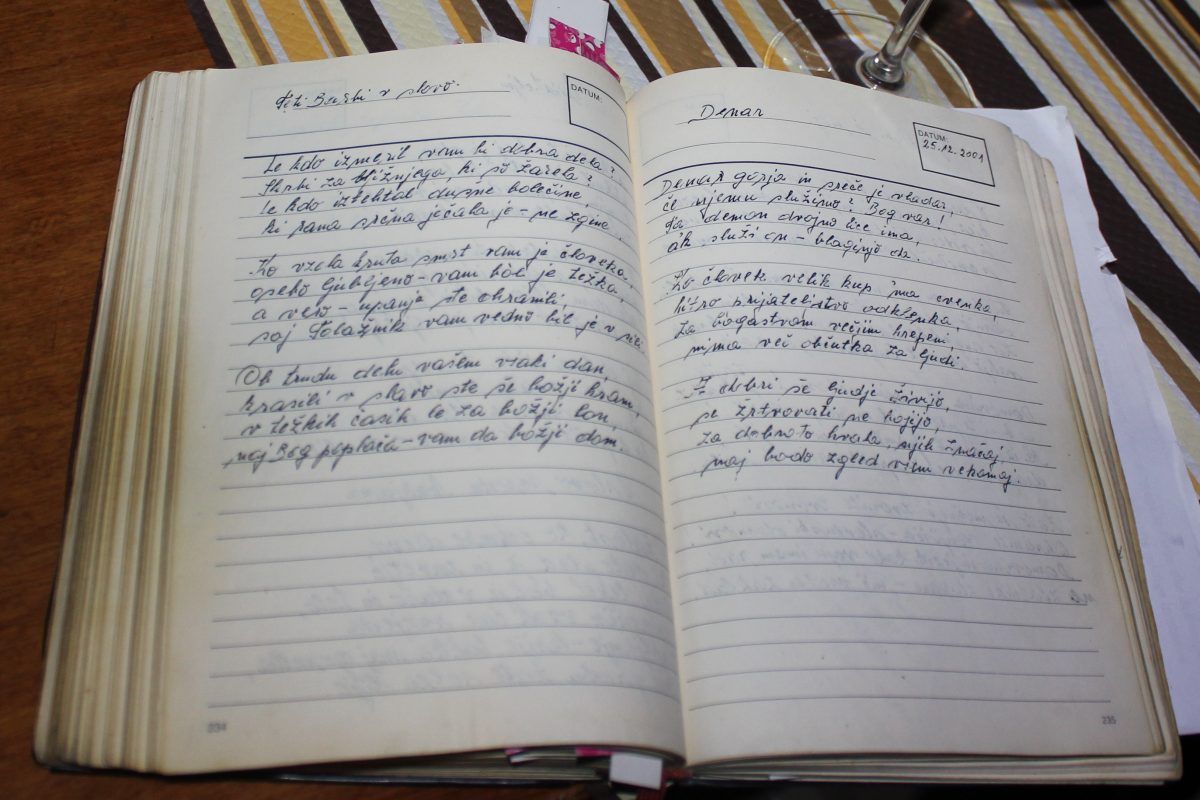 Teti Barbi v slovo.
DATUM:
Le kdo izmeril vam bi dobra dela?
Skrbi za bližnjega, ki so žarela?
Le kdo iztehtal dušne bolečine,
ki rana srčna ječala je - ne zgine.
Ko vzela kruta smrt vam je človeka,
osebo ljubljeno - vam bol je težka,
a vero - upanje ste ohranili,
saj Tolažnik vam vedno bil je v sili.
Ob trudu delu vašem vsaki dan,
krasili v slavo ste še božji hram,
v težkih časih le za božji lon,
naj Bog poplača - vam da božji dom.
234
Denar
DATUM:
25.12.2001
Denar gorja in sreče je vladar,
če njemu služimo? Bog var!
Ta demon dvojno lice ima,
ak služi on - blaginjo da.
Ko človek velik kup 'ma cvenka,
hitro prijateljstvo odklenka,
za bogastvom večjim hrepeni,
nima več občutka za ljudi.
A dobri še ljudje živijo,
se žrtvovati ne bojijo,
za dobroto hvala, njih značaj
naj bodo zgled vsem vekomaj.
235